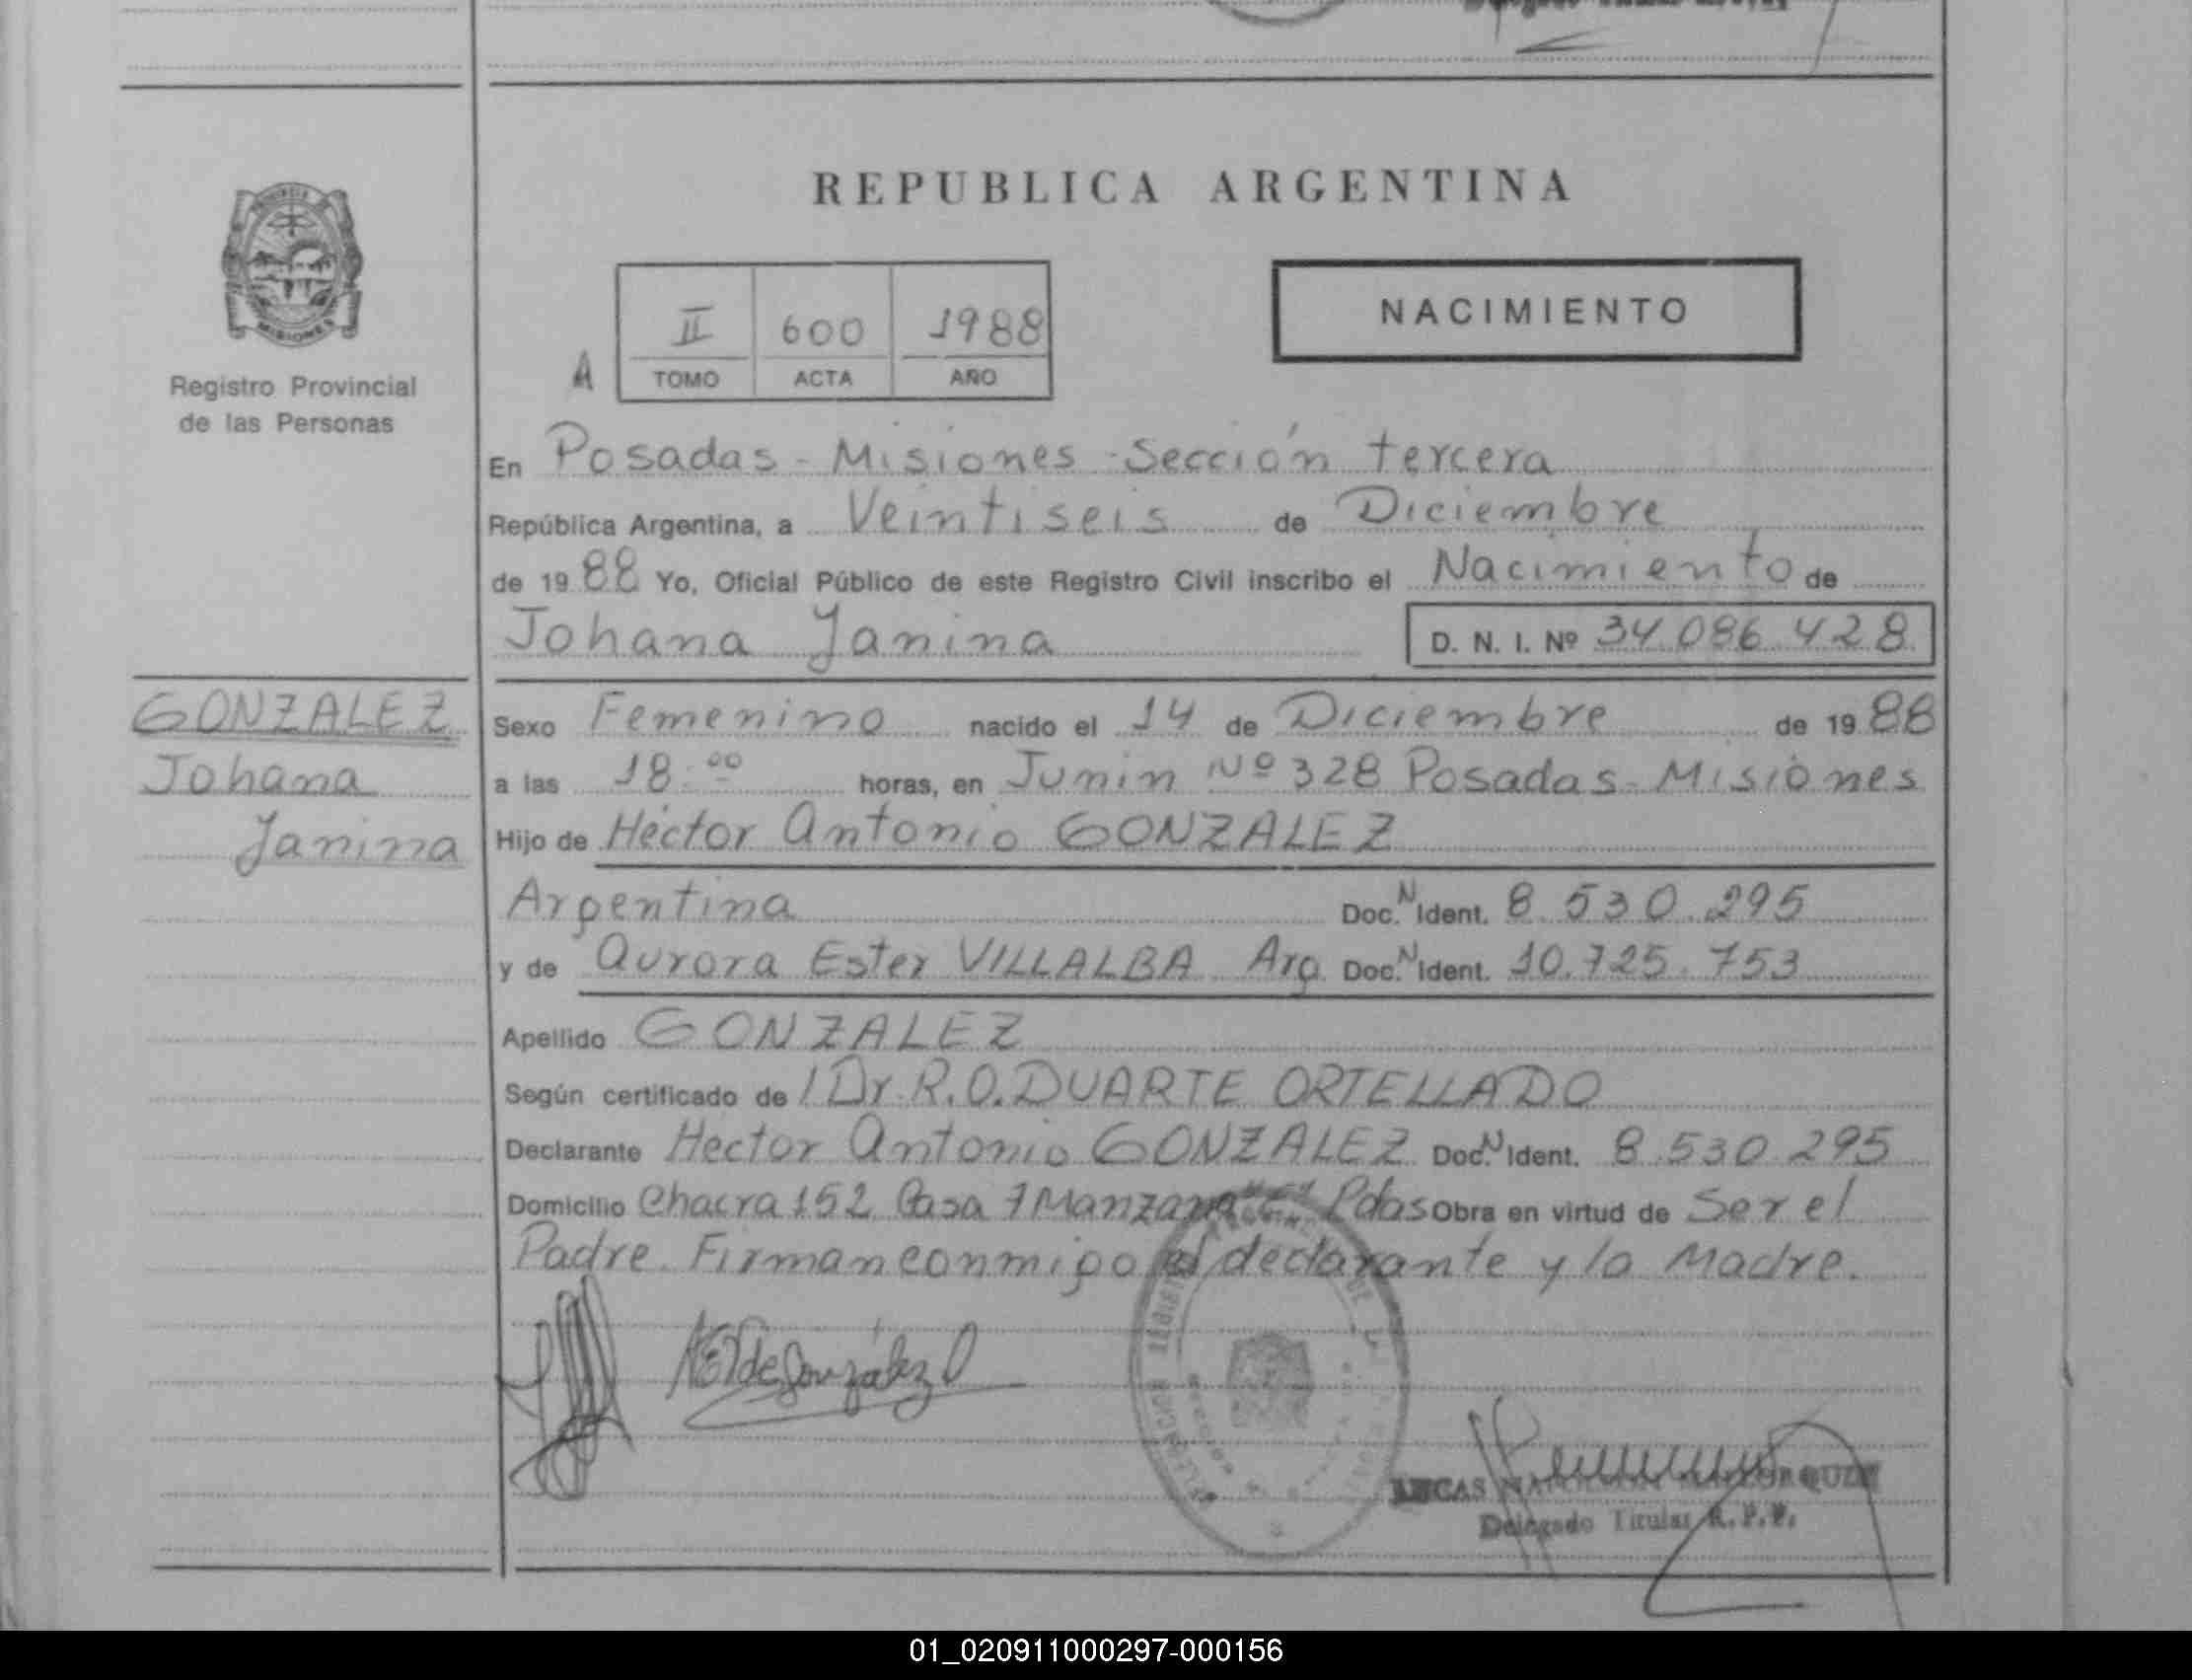 REPUBLICA ARGENTINA
MISIONES
Registro Provincial
de las Personas
II 600 1988
A TOMO ACTA AÑO
NACIMIENTO
En Posadas - Misiones - Sección tercera
República Argentina, a Veintiseis de Diciembre
de 19 88 Yo, Oficial Público de este Registro Civil inscribo el Nacimiento de
Johana Janina D. N. I. Nº 34.086.428
GONZALEZ
Johana
Janina
Sexo Femenino nacido el 14 de Diciembre de 19 88
a las 18:00 horas, en Junin Nº 328 Posadas - Misiones
Hijo de Héctor Antonio GONZALEZ
Argentina Doc. N Ident. 8.530.295
y de Aurora Ester VILLALBA Arg. Doc. N Ident. 10.725.753
Apellido GONZALEZ
Según certificado de l Dr. R.O. DUARTE ORTELLADO
Declarante Hector Antonio GONZALEZ Doc. N Ident. 8.530.295
Domicilio Chacra 152 Casa 7 Manzana Pdas Obra en virtud de Ser el
Padre. Firman conmigo el declarante y la Madre.
de González
LUCAS
Delegado Titular R.P.P.
01_020911000297-000156